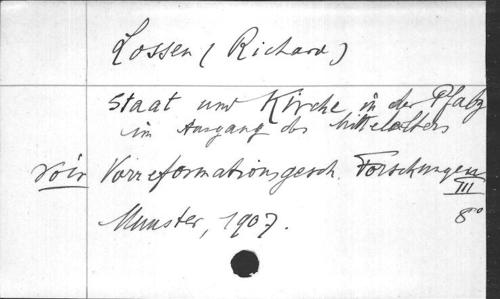 Lossen (Richard)
Staat und Kirche in der Pfalz
im Ausgang des Mittelalters
voir Vorreformationsgesch. Forschungen
III
Munster, 1907.
8vo